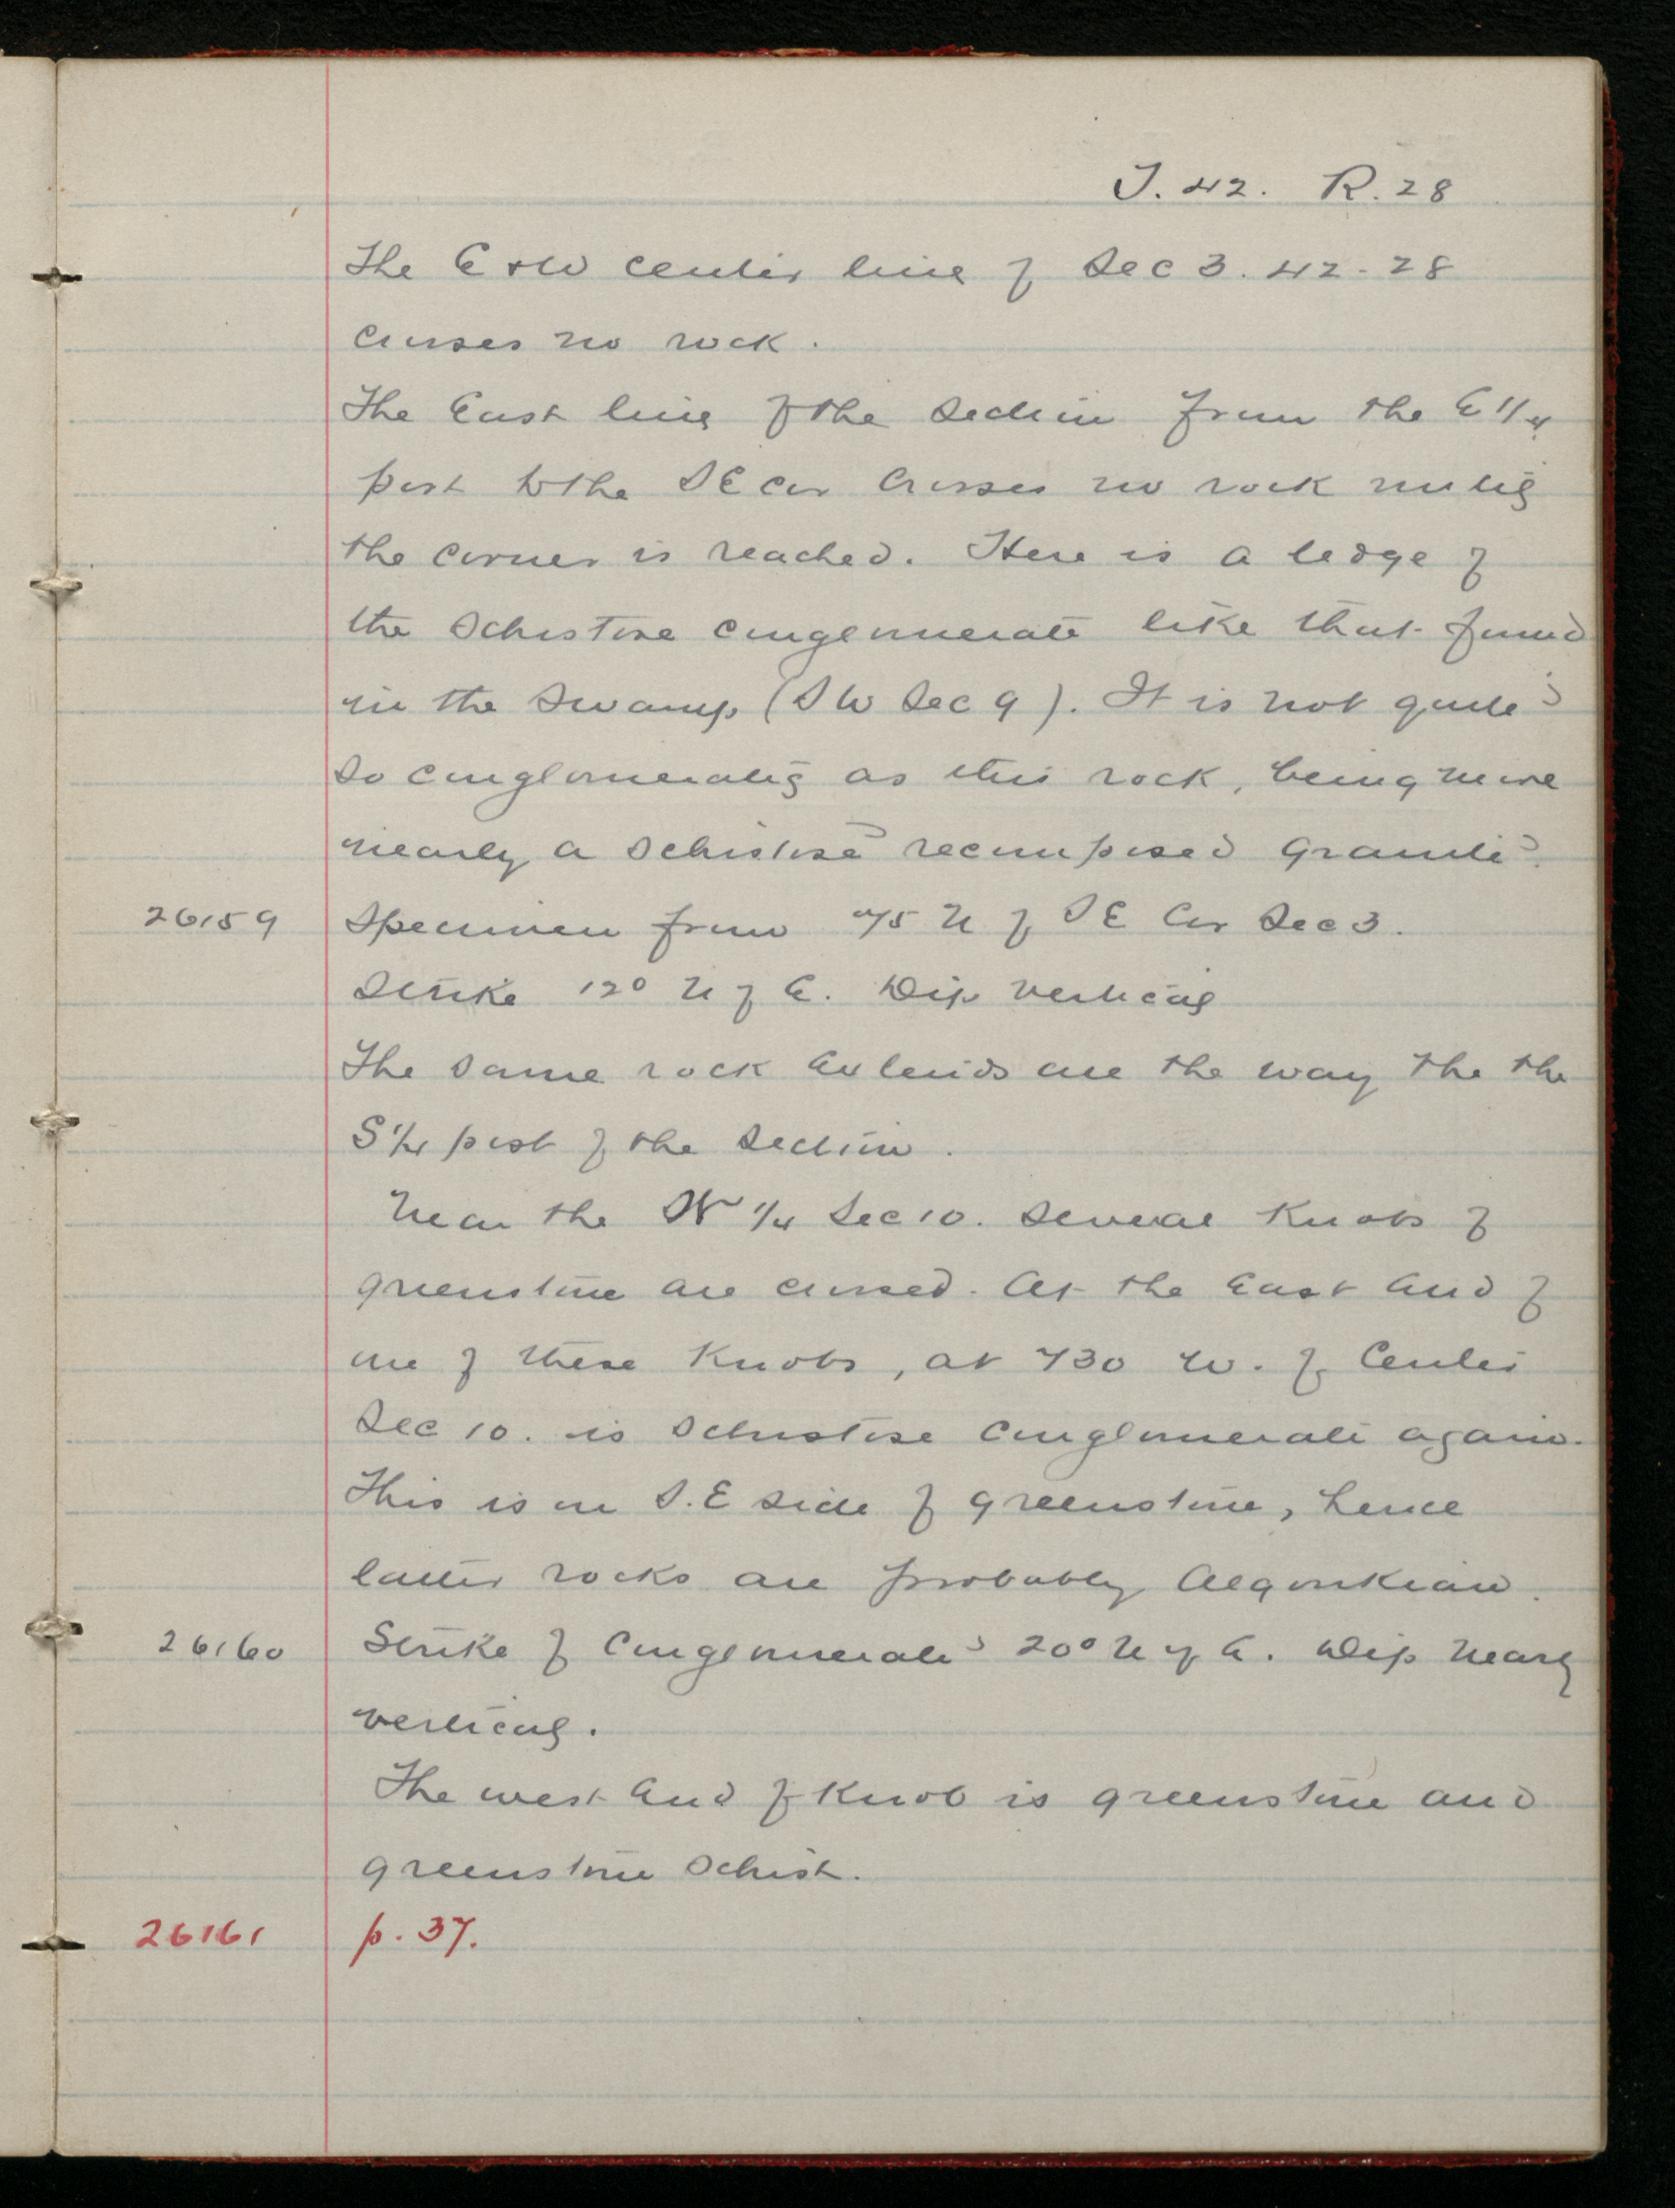 T. 42. R. 28
The E + W center line of Sec 3. 42-28
crosses no rock.
The East line of the section from the E 1/4
post to the SE cor crosses no rock until
the corner is reached. Here is a ledge of
the schistose conglomerate like that found
in the swamp (SW Sec 9). It is not quite
so conglomeratic as this rock, being more
nearly a schistose recomposed granite.
26159 Specimen from 75 N of SE Cor Sec 3.
Strike 12° N of E. Dip vertical
The same rock extends all the way the the
S 1/4 post of the section.
Near the W 1/4 Sec 10. several knobs of
greenstone are crossed. At the East end of
one of these knobs, at 730 W. of Center
Sec 10. is schistose conglomerate again.
This is on S.E side of greenstone, hence
latter rocks are probably Algonkian.
26160 Strike of conglomerate 20° N of E. Dip nearly
vertical.
The west end of knob is greenstone and
greenstone schist.
26161 p. 37.